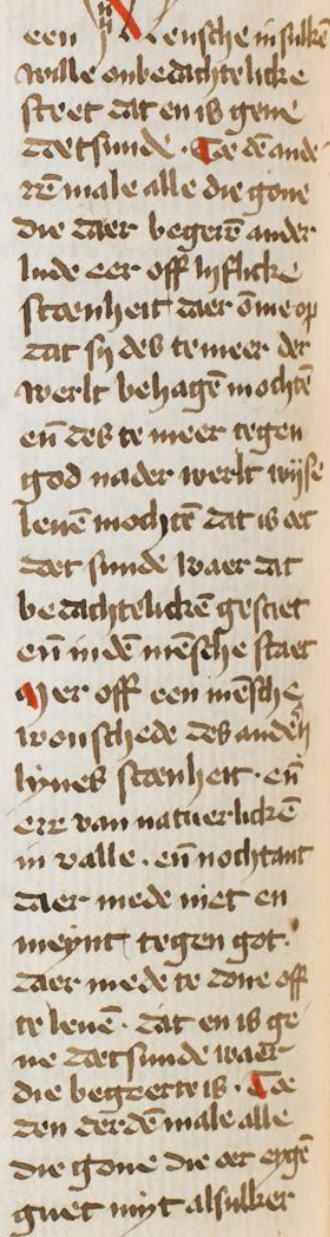 een mensche in sulkē
wille onbedachtelicke
steet dat en is gene
doetsunde. Toe dē ande
rē male alle die gone
die daer begerē ander
lude eer off lyflicke
scoenheit daer ōme op
dat sy des te meer der
werlt behagē mochtē
eñ des te meer tegen
god nader werlt wyse
leuē mochtē dat is oec
doet sunde waer dat
bedachtelickē gesciet
eñ in dē mēsche staet
Mer off een mēsche
wonschede des anderen
lyues scoenheit. eñ
ere van natuerlickē
in valle. eñ nochtant
daer mede niet en
meynt tegen got.
daer mede te done off
te leuē. dat en is ge
ne doetsunde waer
die begeerte is. Toe
den derdē male alle
die gone die oer eygē
guet myt alsulker